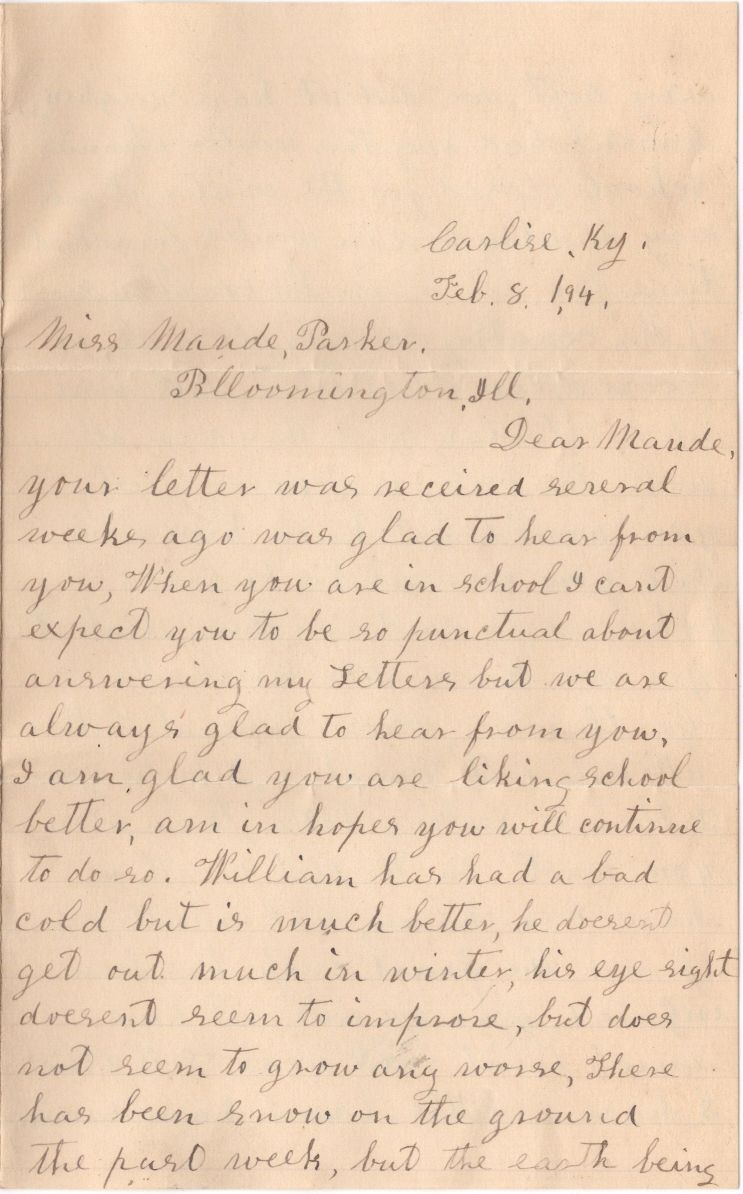 Carlise, Ky.
Feb. 8, 1,94,
Miss Maude, Parker.
Blloomington, Ill,
Dear Maude,
your letter was received several
weeks ago was glad to hear from
you, When you are in school I cant
expect you to be so punctual about
answering my Letters but we are
always glad to hear from you,
I am glad you are liking school
better, am in hopes you will continue
to do so. William has had a bad
cold but is much better, he doesent
get out much in winter, his eye sight
doesent seem to improve, but does
not seem to grow any worse, There
has been snow on the ground
the past week, but the earth being